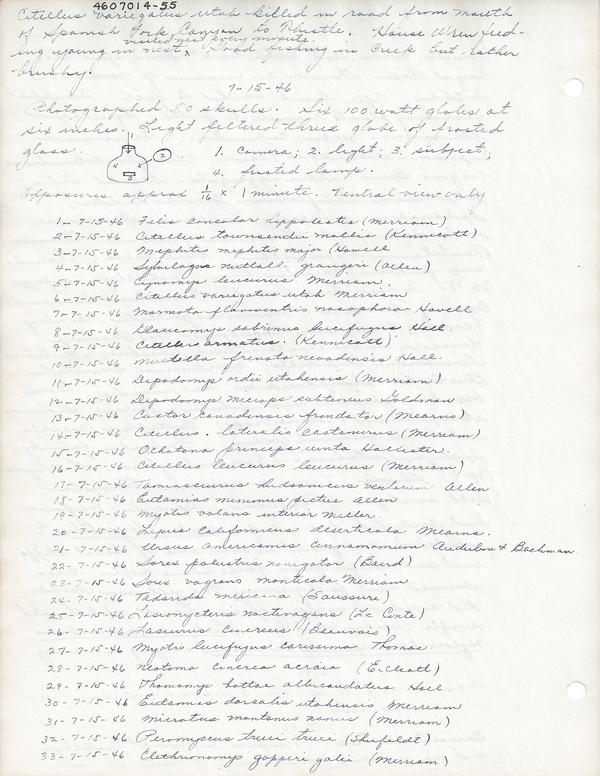 4607014-55
Citellus variegatus utah killed in road from mouth
of Spanish Fork Canyon to Thistle. House Wren feed-
visited nest every minute.
ing young in nest. Good fishing in Creek but rather
brushy.
7-15-46
Photographed 50 skulls. Six 100 watt globes at
six inches. Light filtered three globe of frosted
glass.
1
2
4
4
3
1. Camera; 2. light; 3. subject;
4. frosted lamp.
Exposures approx 1/16 x 1 minute. Ventral view only
1-7-15-46 Felis concolor hippolestes (Merriam)
2-7-15-46 Citellus townsendii mollis (Kennicott)
3-7-15-46 Mephitis mephitis major (Howell
4-7-15-46 Sylvilagus nuttalli grangeri (Allen)
5-7-15-46 Cynomys leucurus Merriam.
6-7-15-46 Citellus variegatus utah Merriam
7-7-15-46 Marmota flaviventris nosophora Howell
8-7-15-46 Glaucomys sabrinus lucifugus Hall.
9-7-15-46 Citellus armatus. (Kennicott)
10-7-15-46 Mustella frenata nevadensis Hall.
11-7-15-46 Dipodomys ordii utahensis (Merriam)
12-7-15-46 Dipodomys microps subtenuis Goldman
13-7-15-46 Castor canadensis frondator (Mearns)
14-7-15-46 Citellus. lateralis castanurus (Merriam)
15-7-15-46 Ochotona princeps uinta Hollister.
16-7-15-46 Citellus leucurus leucurus (Merriam)
17-7-15-46 Tamiasciurus hudsonicus ventorum Allen
18-7-15-46 Eutamias minimus pictus Allen
19-7-15-46 Myotis volans interior Miller.
20-7-15-46 Lepus californicus deserticola Mearns.
21-7-15-46 Ursus americanus cinnamomum Audubon & Bachman
22-7-15-46 Sorex palustris navigator (Baird)
23-7-15-46 Sorex vagrans monticola Merriam
24-7-15-46 Tadarida mexicana (Saussure)
25-7-15-46 Lasionycteris noctivagans (Le Conte)
26-7-15-46 Lasiurus cinereus (Beauvois)
27-7-15-46 Myotis lucifugus carissima Thomas
28-7-15-46 Neotoma cinerea acraia (Elliott)
29-7-15-46 Thomomys bottae albicaudatus Hall.
30-7-15-46 Eutamias dorsalis utahensis Merriam
31-7-15-46 Microtus montanus nanus (Merriam)
32-7-15-46 Peromyscus truei truei (Shufeldt)
33-7-15-46 Clethrionomys gapperi galei (Merriam)